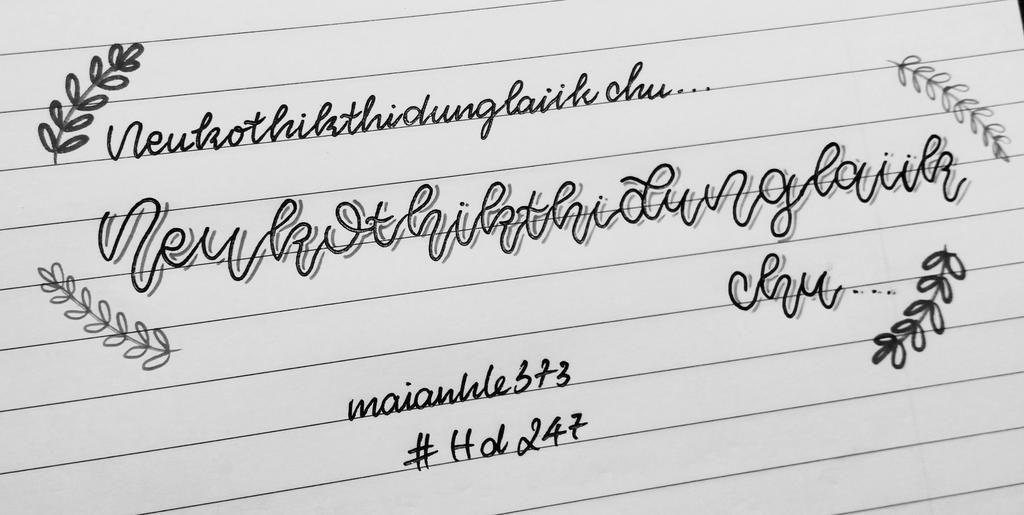 Neukothikthidunglaiik chu...
Neukothikthidunglaiik
chu...
maianhle373
#Hd 247